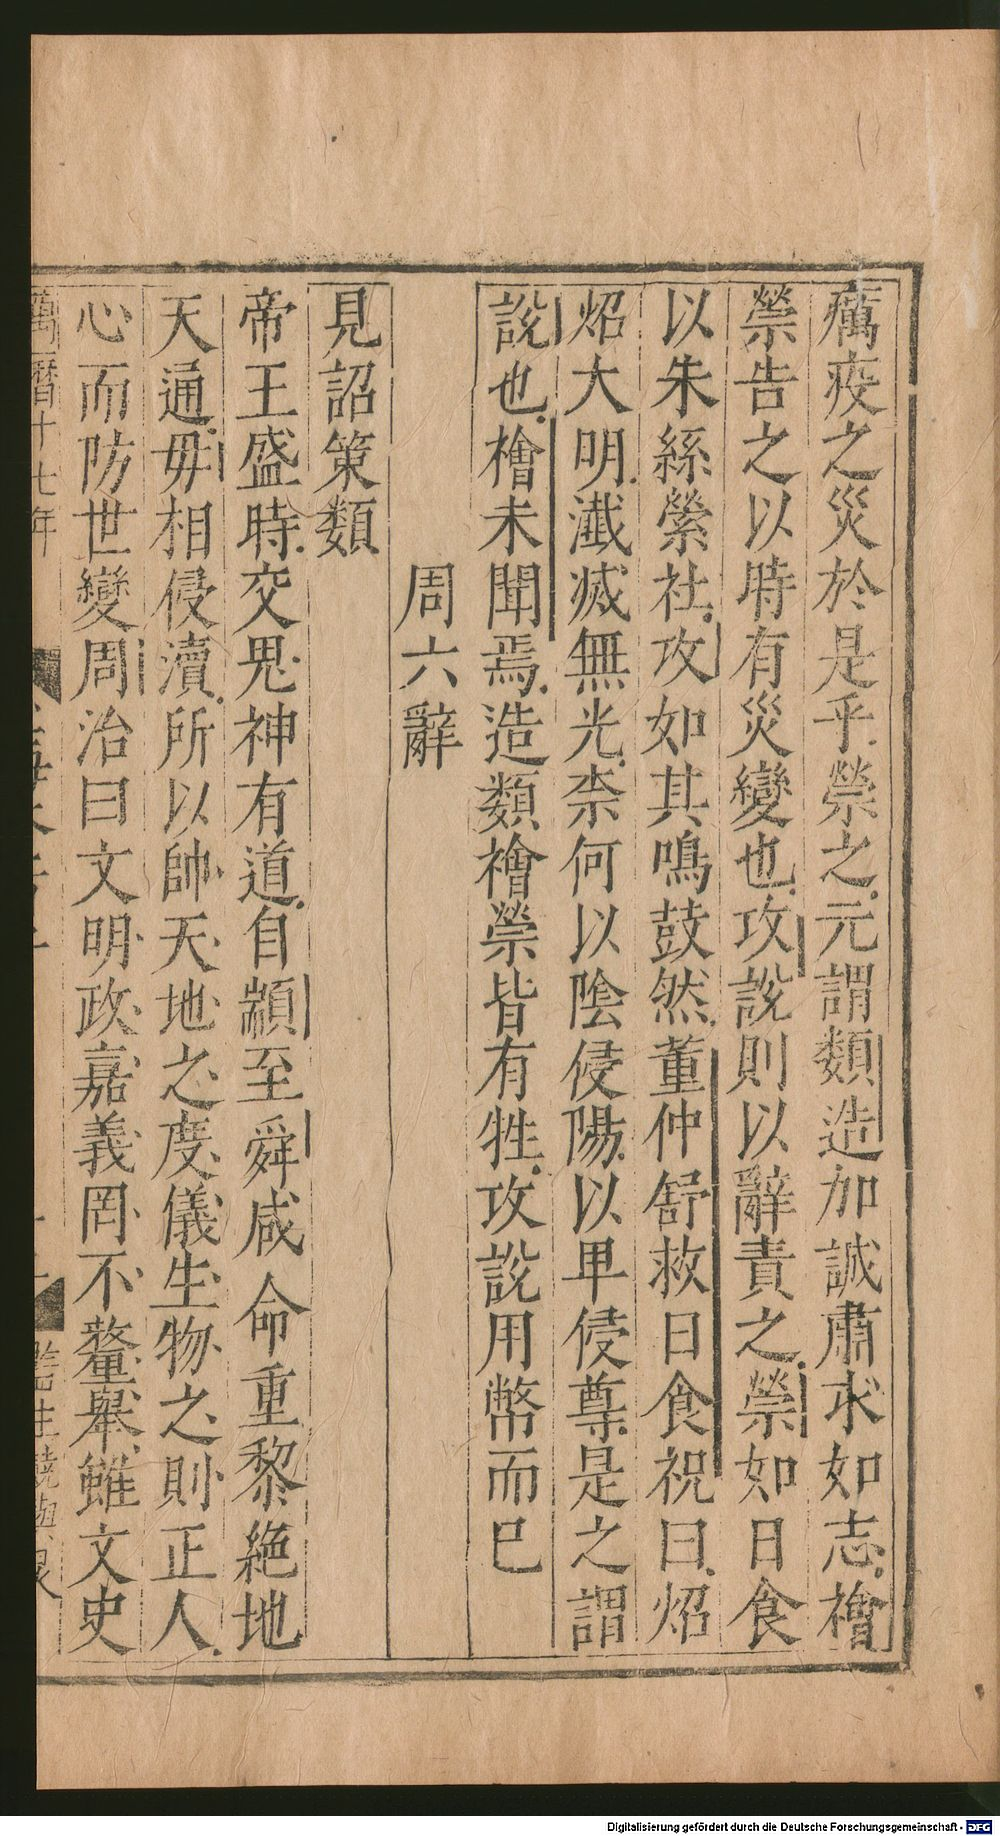 癘疫之災於是乎禜之元謂類造加誠肅求如志禬
禜告之以時有災變也攻說則以辭責之禜如日食
以朱絲縈社攻如其鳴鼓然董仲舒救日食祝曰炤
炤大明瀸滅無光柰何以陰侵陽以卑侵尊是之謂
說也檜未聞焉造類禬禜皆有牲攻說用幣而巳
周六辭
見詔策類
帝王盛時交鬼神有道自顓至舜咸命重黎絶地
天通毋相侵瀆所以帥天地之度儀生物之則正人
心而防世變周治曰文明政嘉義罔不釐舉雖文史
萬曆十七年
Digitalisierung gefördert durch die Deutsche Forschungsgemeinschaft - DFG